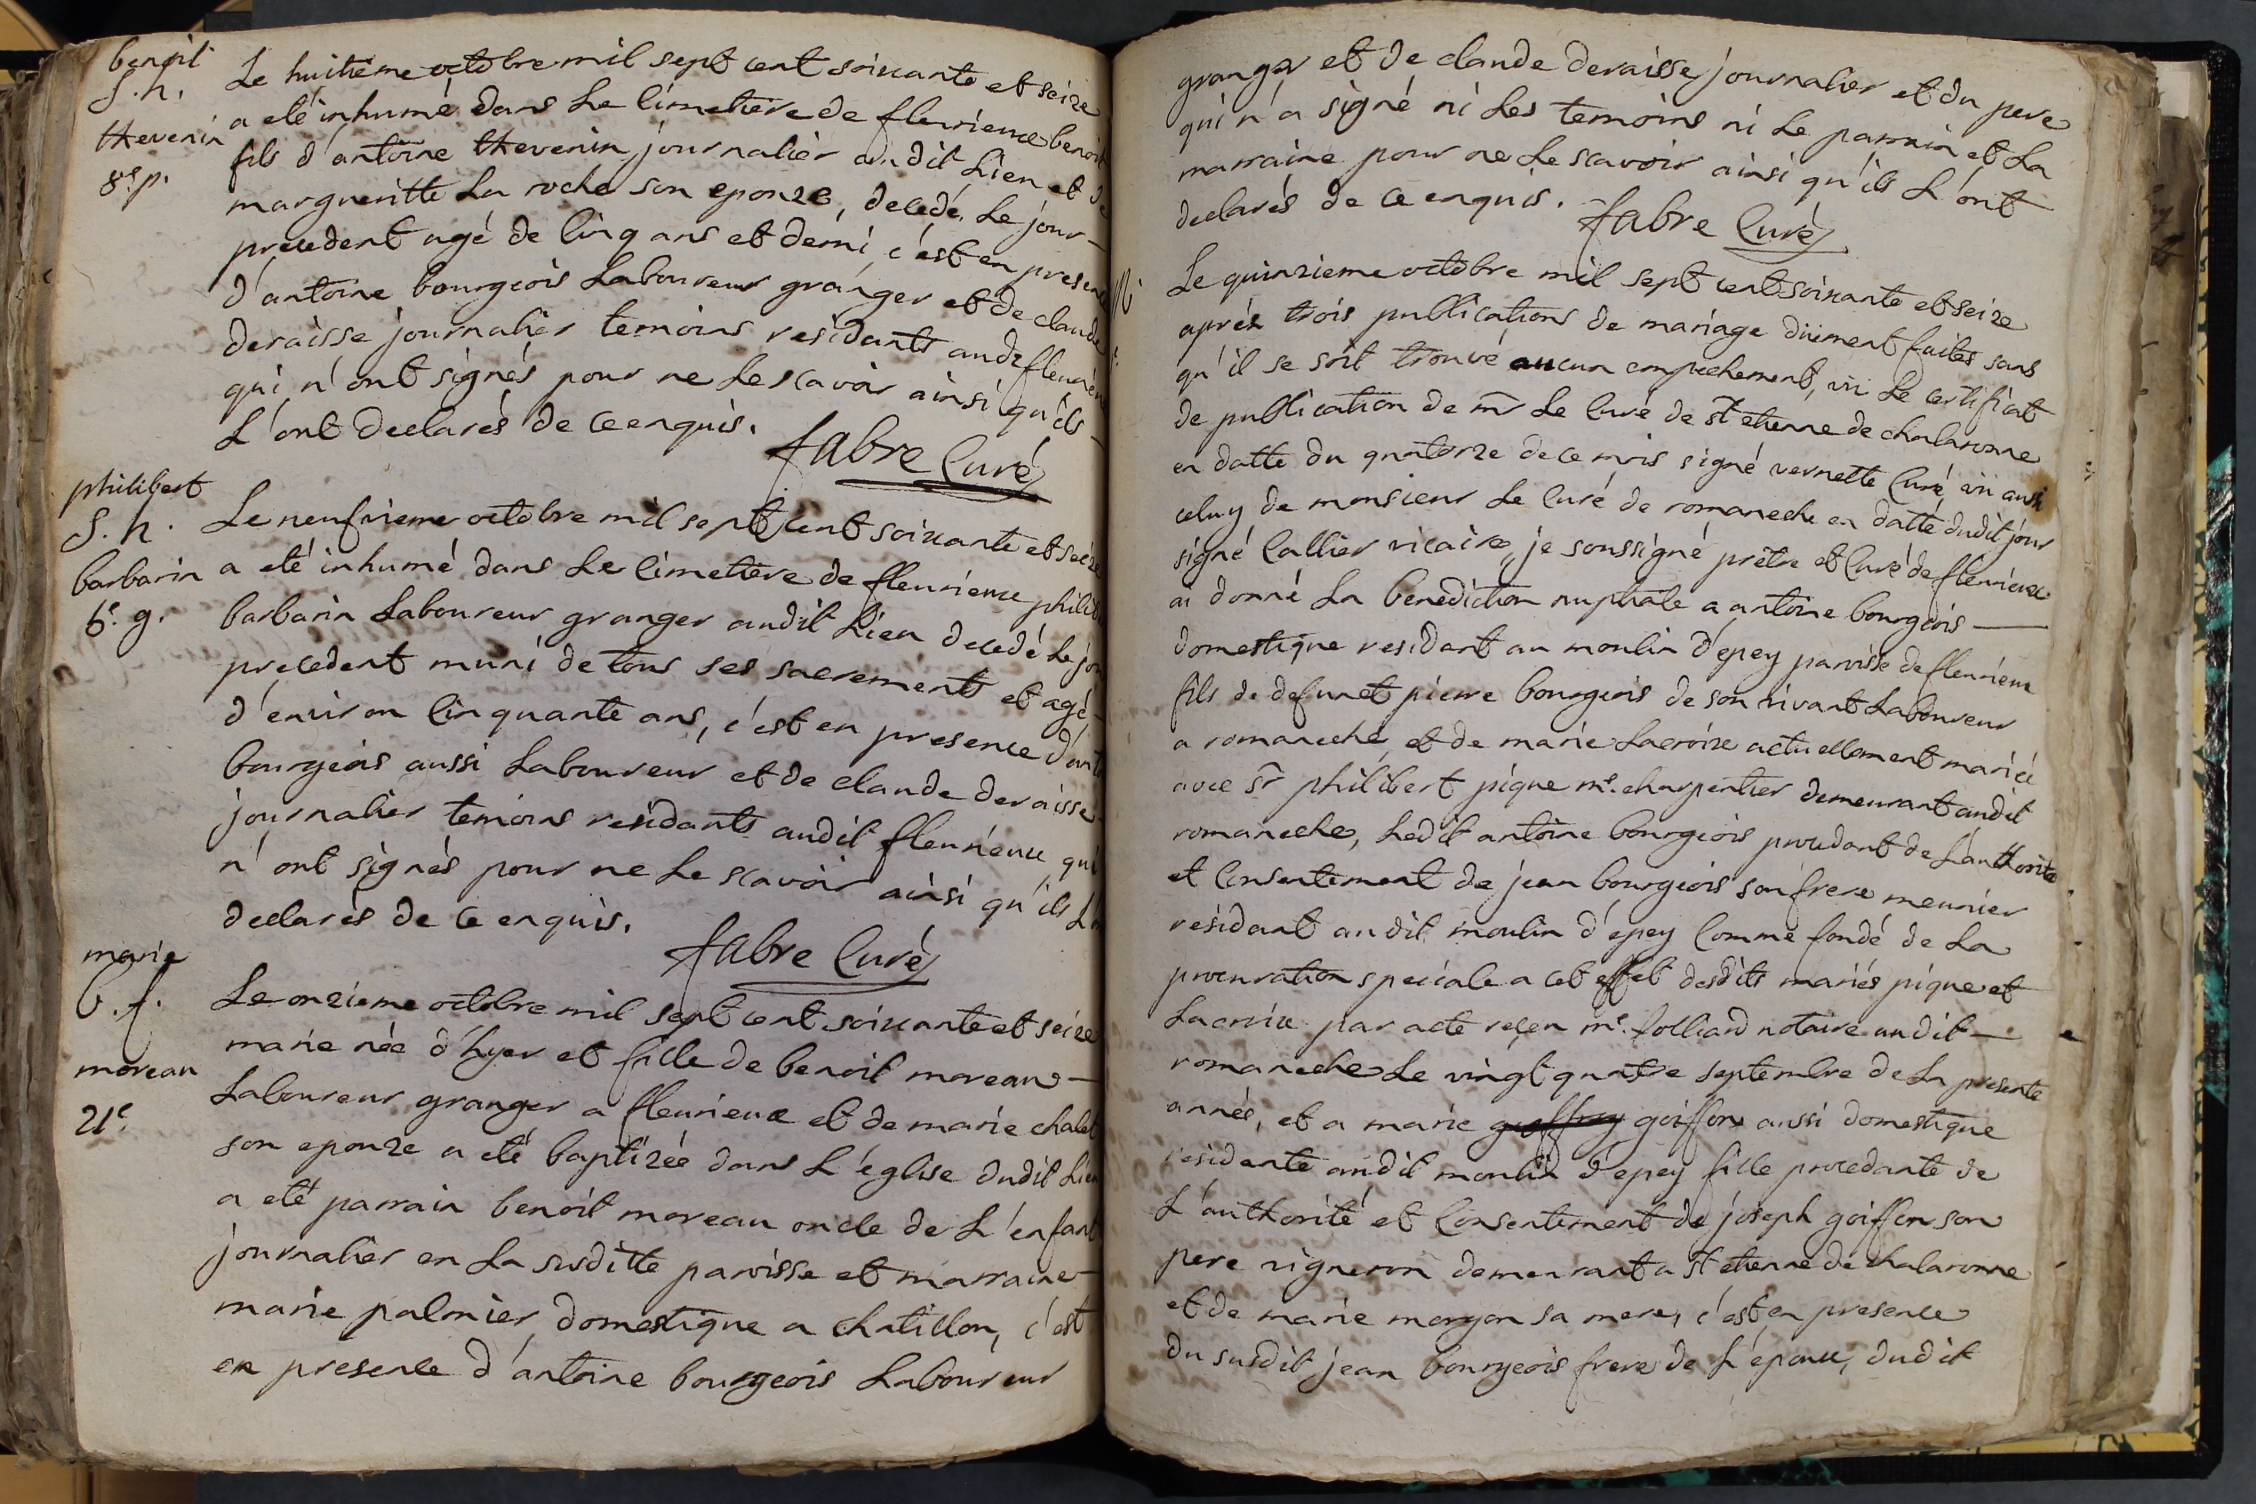 benoit
S. h.
thevenin
8e. p.
Le huitième octobre mil sept cent soixante et seize
a eté inhumé dans Le Cimetière de fleurieux benoit
fils d'antoine thevenin journalier audit Lieu et de
margueritte La roche son epouze, decedé Le jour
precedent agé de Cinq ans et demi, c'est en presence
d'antoine bourgeois Laboureur granger et de claude
deraisse journalier temoins residants audt fleurieux
qui n'ont signés pour ne Le scavoir ainsi qu'ils
L'ont declarés de ce enquis.
fabre Curé
philibert
S. h.
barbarin
6e. g.
Le neufvieme octobre mil sept cent soixante et seize
a eté inhumé dans Le Cimetière de fleurieux philib
barbarin Laboureur granger audit Lieu decedé Le jour
precedent muni de tous ses sacrements et agé
d'environ Cinquante ans, c'est en presence d'anto
bourgeois aussi Laboureur et de claude deraisse
journalier temoins residants audit fleurieux qui
n'ont signés pour ne Le scavoir ainsi qu'ils L'
declarés de ce enquis.
fabre Curé
marie
b. f.
moreau
21e
Le onzieme octobre mil sept cent soixante et seize
marie née d'hyer et fille de benoit moreau
Laboureur granger a fleurieux et de marie chalet
son epouze a eté baptizée dans L'église dudit Lieu
a eté parrain benoit moreau oncle de L'enfant
journalier en La susditte paroisse et marraine
marie palmier domestique a chatillon, c'est
en presence d'antoine bourgeois Laboureur
granger et de claude deraisse journalier et du pere
qui n'a signé ni Les temoins ni Le parrain et La
marraine pour ne Le scavoir ainsi qu'ils L'ont
declarés de ce enquis.
fabre Curé
Le quinzieme octobre mil sept cent soixante et seize
après trois publications de mariage düement faites sans
qu'il se soit trouvé aucun empechement, vu Le certificat
de publication de mr Le Curé de st etienne de chalaronne
en datte du quatorze de ce mois signé vernette Curé, vu aussi
celuy de monsieur Le Curé de romaneche en datte dudit jour
signé Callier vicaire, je soussigné prêtre et Curé de fleurieux
ai donné La benediction nuptiale a antoine bourgeois
domestique residant au moulin d'épey paroisse de fleurieux
fils de defunct pierre bourgeois de son vivant Laboureur
a romaneche, et de marie Lacroix actuellement mariée
avec sr philibert pique me. charpentier demeurant audit
romaneche, Ledit antoine bourgeois procedant de L'authorité
et Consentement de jean bourgeois son frere meunier
residant audit moulin d'épey Comme fondé de La
procuration speciale a cet effet desdits mariés pique et
Lacroix par acte reçeu me. folliard notaire audit
romaneche Le vingt quatre septembre de La presente
année, et a marie goiffon aussi domestique
residante audit moulin d'épey fille procedante de
L'authorité et Consentement de joseph goiffon son
pere vigneron demeurant a st etienne de chalaronne
et de marie morgon sa mere, c'est en presence
du susdit jean bourgeois frere de L'epoux, dudit